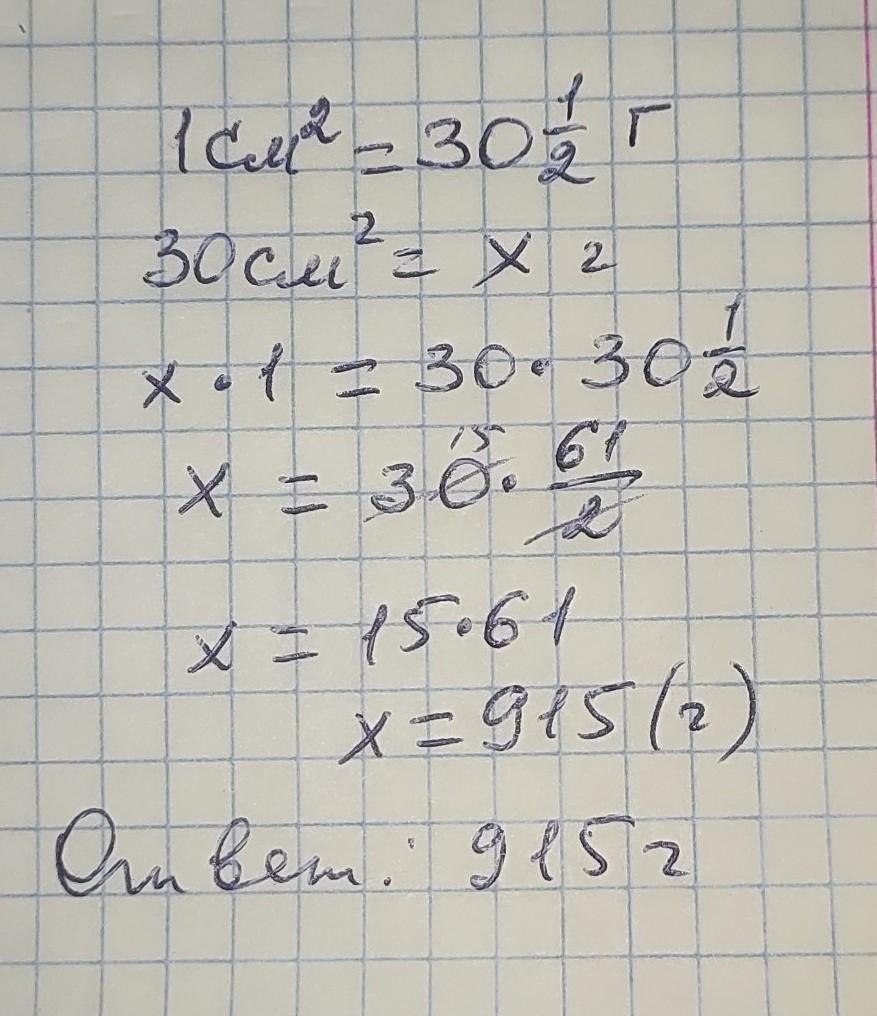 1см² = 30 1/2 г
30см² = x г
x · 1 = 30 · 30 1/2
x = 30 15 · 61/2
x = 15 · 61
x = 915 (г)
Ответ: 915 г